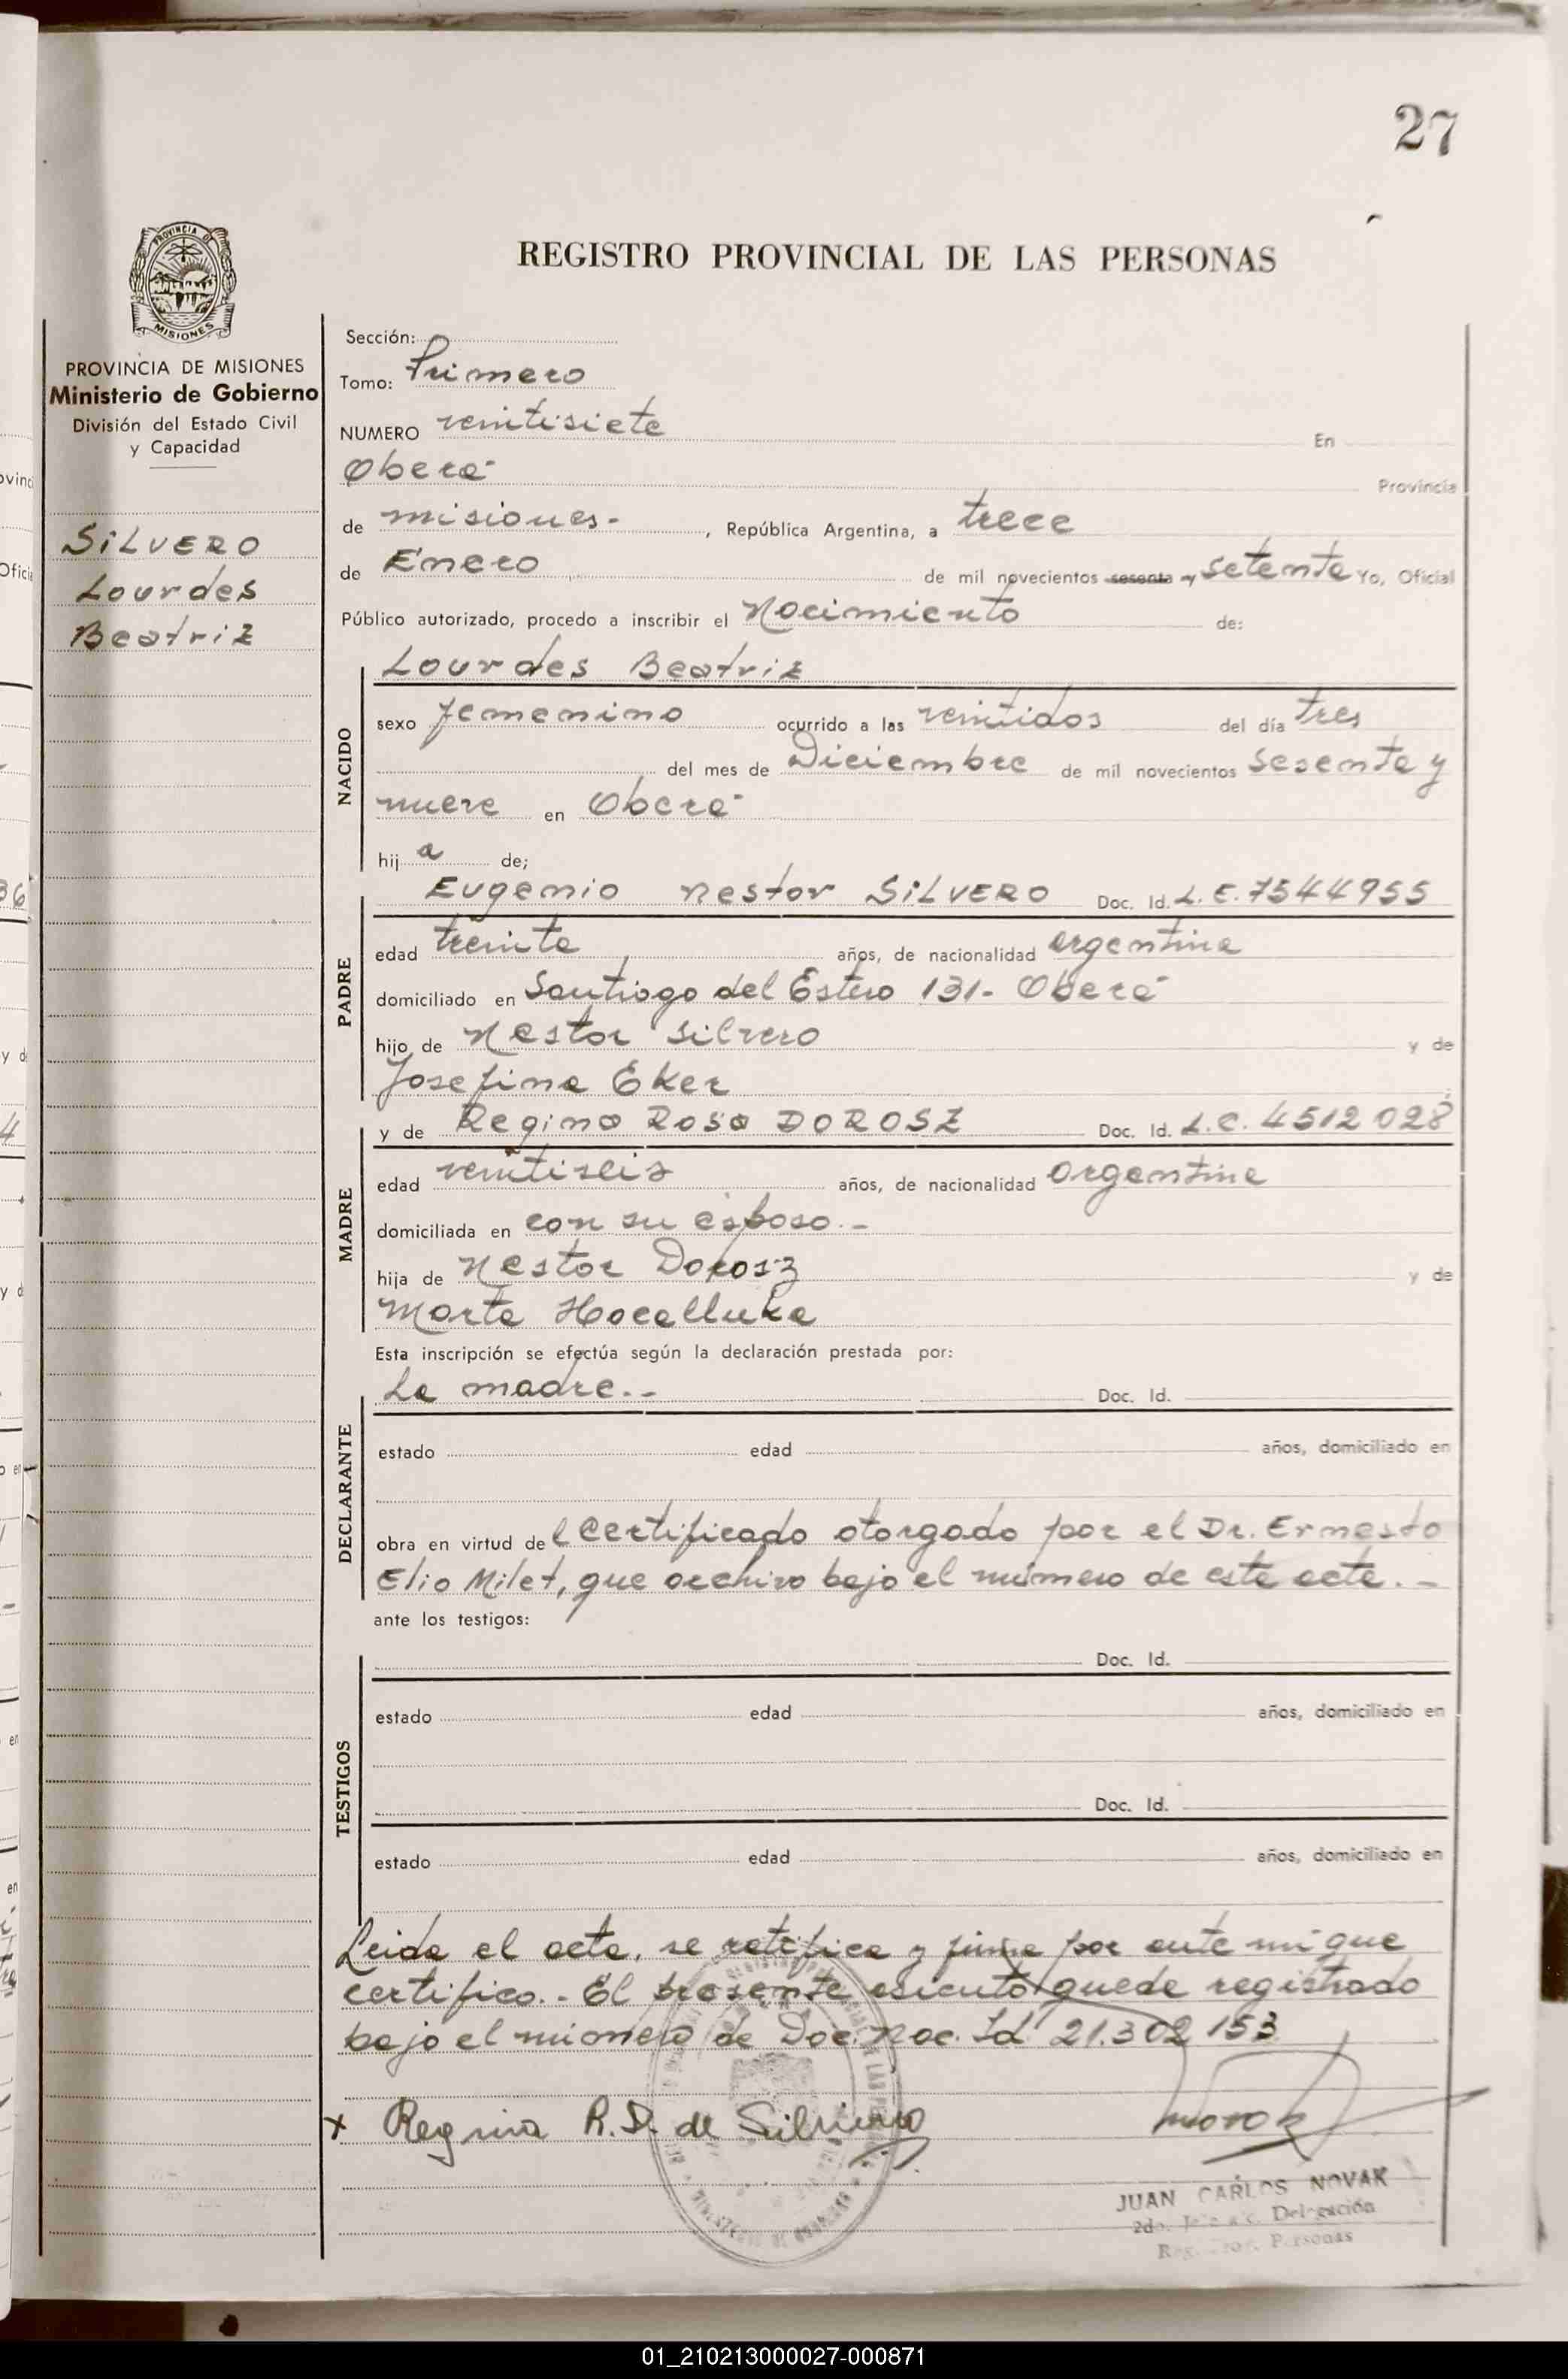 27
REGISTRO PROVINCIAL DE LAS PERSONAS
PROVINCIA DE MISIONES
Ministerio de Gobierno
División del Estado Civil
y Capacidad
SILVERO
Lourdes
Beatriz
Sección:
Tomo: Primero
NUMERO veintisiete En
Oberá Provincia
de Misiones.- , República Argentina, a trece
de Enero de mil novecientos sesenta y setenta Yo, Oficial
Público autorizado, procedo a inscribir el Nacimiento de:
Lourdes Beatriz
NACIDO
sexo femenino ocurrido a las veintidos del día tres
del mes de Diciembre de mil novecientos sesenta y
nueve en Oberá
hij a de;
Eugenio Nestor SILVERO Doc. Id. L.E. 7544955
PADRE
edad treinta años, de nacionalidad argentina
domiciliado en Santiago del Estero 131- Oberá
hijo de Nestor Silvero y de
Josefina Eker
y de Regina Rosa DOROSZ Doc. Id. L.C. 4512028
MADRE
edad veintiseis años, de nacionalidad argentina
domiciliada en con su esposo.-
hija de Nestor Dorosz y de
Marta
Esta inscripción se efectúa según la declaración prestada por:
La madre.- Doc. Id.
DECLARANTE
estado edad años, domiciliado en
obra en virtud de l certificado otorgado por el Dr. Ernesto
Elio Milet, que archivo bajo el número de este acta.-
ante los testigos:
Doc. Id.
TESTIGOS
estado edad años, domiciliado en
Doc. Id.
estado edad años, domiciliado en
Leida el acta, se ratifica y firma por ante mi que
certifico.- El presente asiento queda registrado
bajo el número de Doc. Nac. Id 21.302153
x Regina R.D. de Silvero
Novak
JUAN CARLOS NOVAK
2do. Jefe a/c. Delegación
Reg. Prov. Personas
01_210213000027-000871